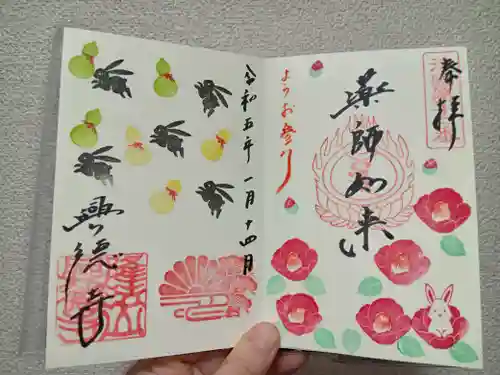 奉拝
薬師如来
ようお参り
令和五年一月十四日
興徳寺